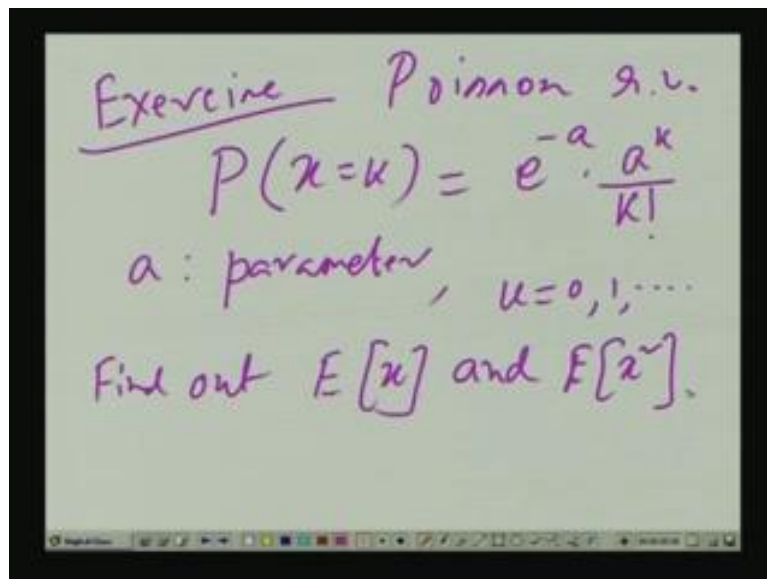 Exercise Poisson r.v.
P(x=k) = e^{-a} · \frac{a^k}{k!}
a : parameter, k=0,1,....
Find out E[x] and E[x^2].